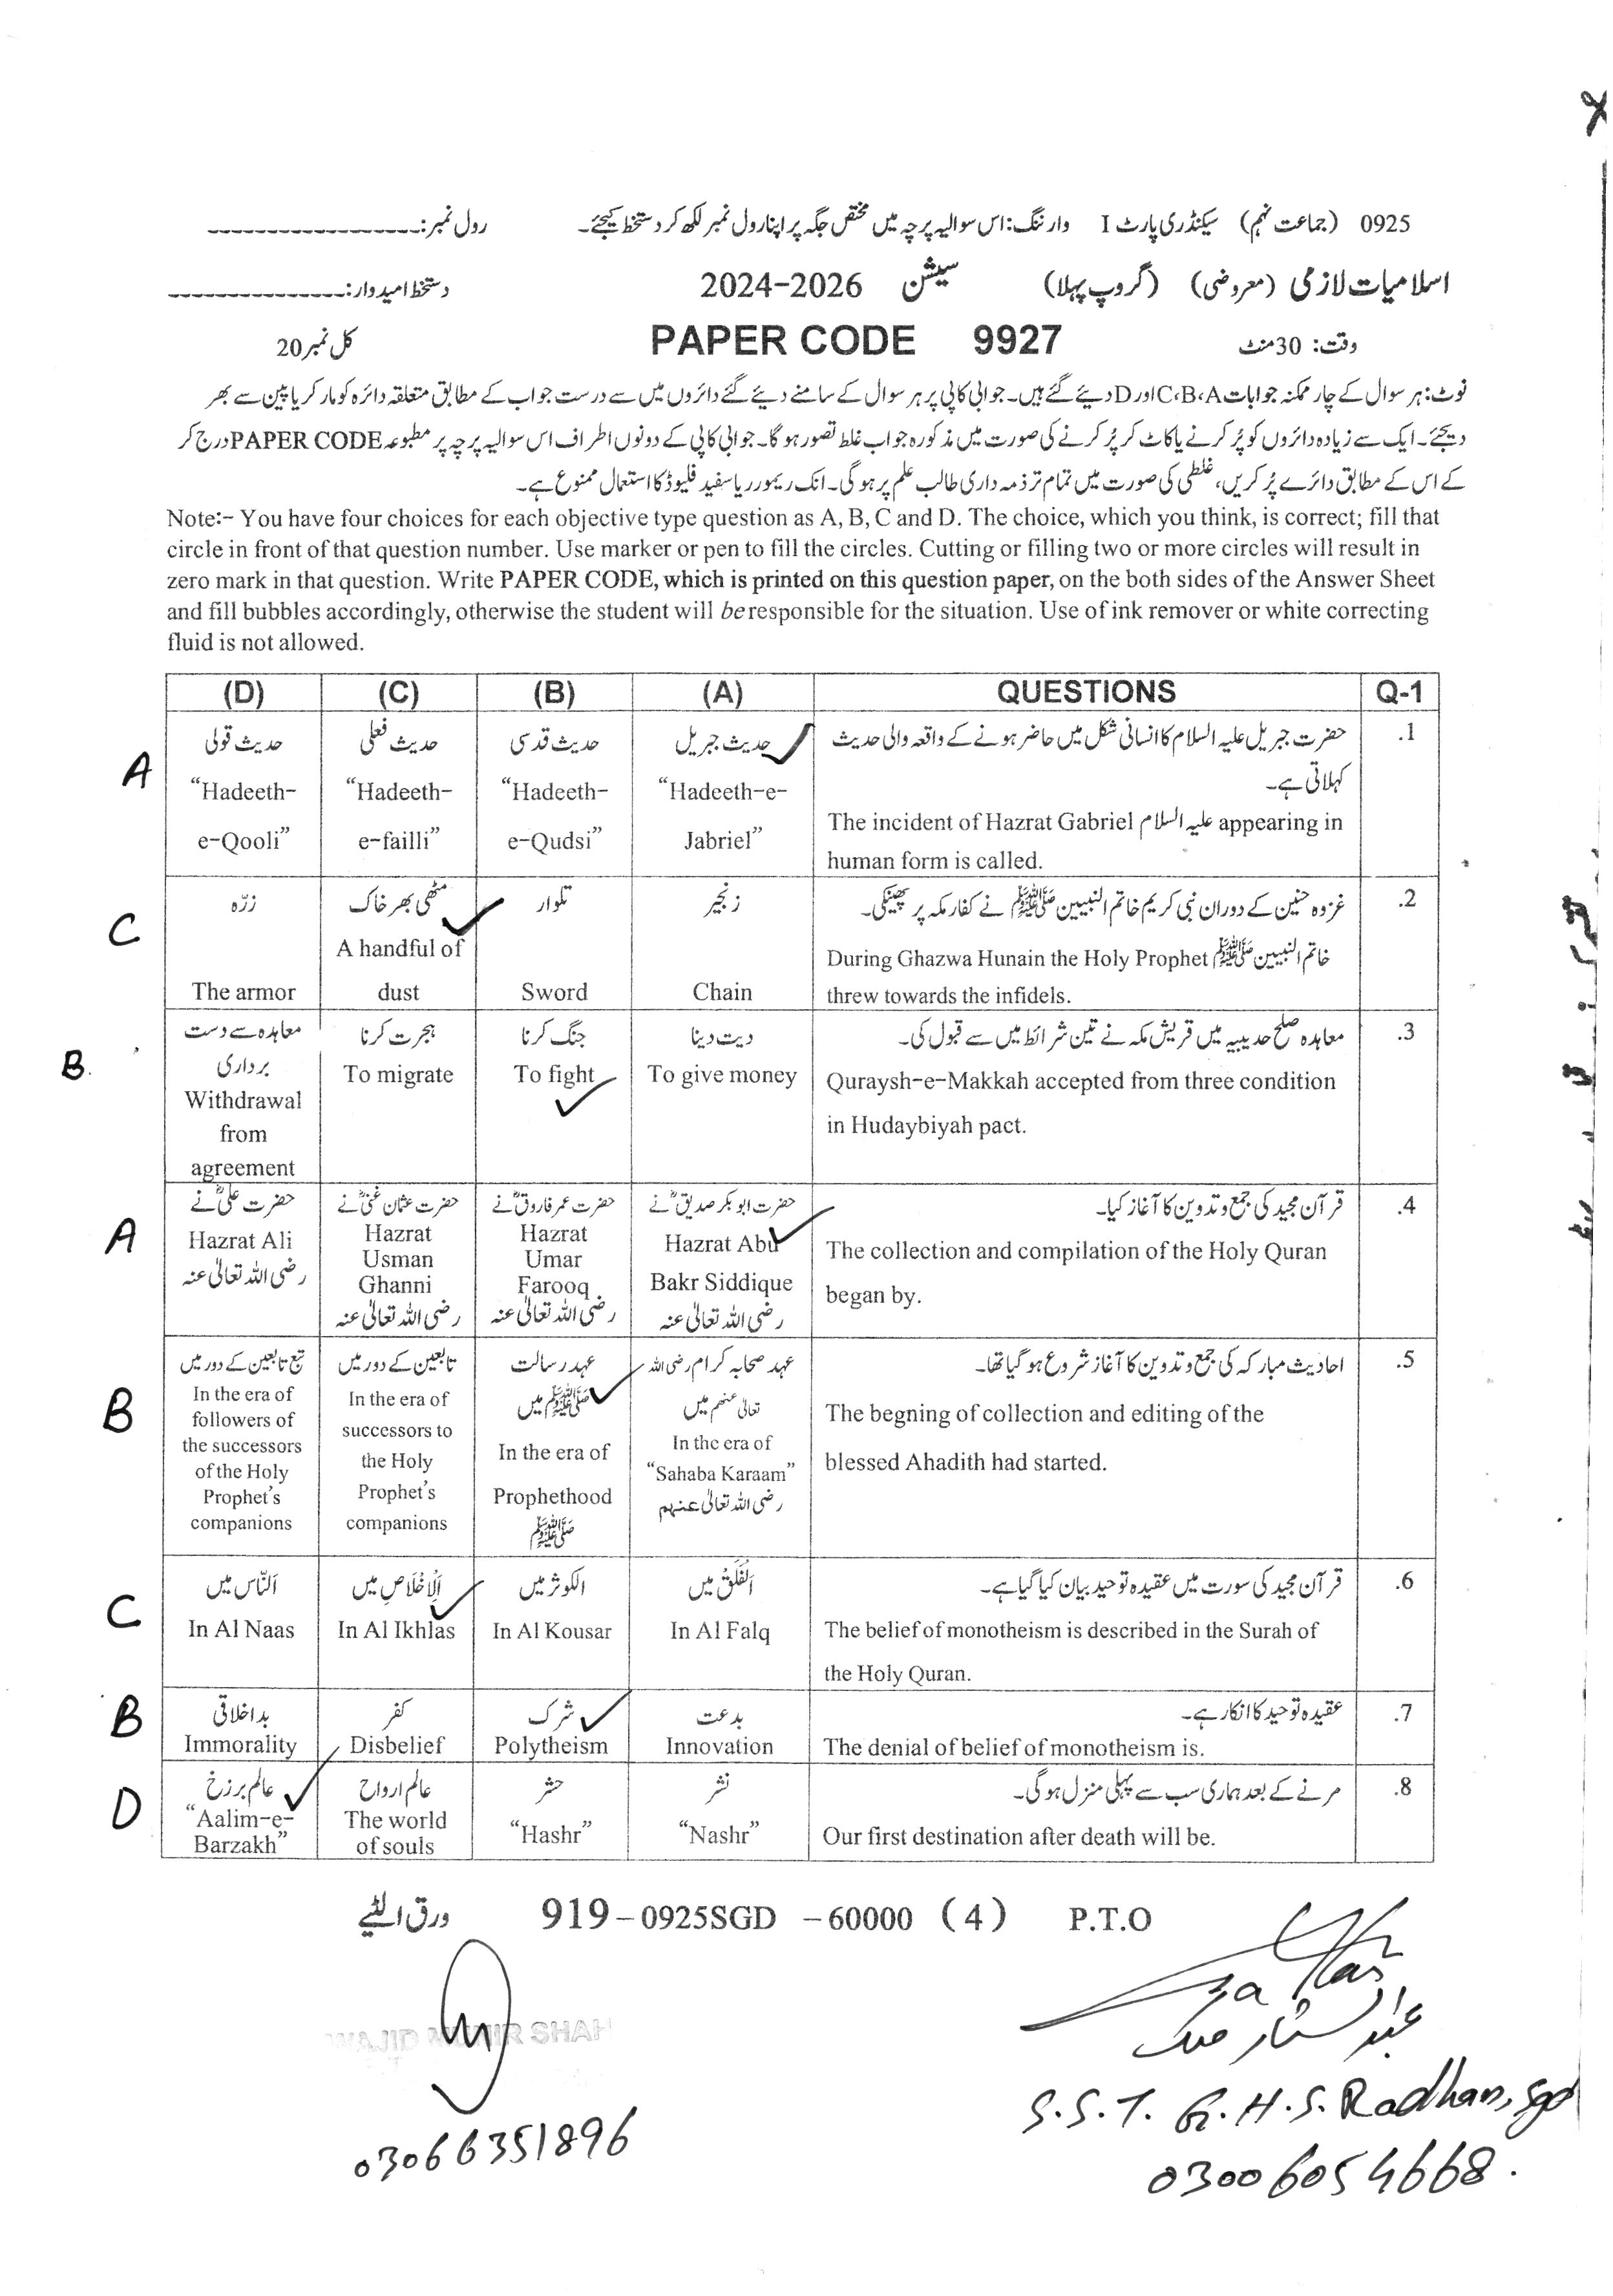 0925 (جماعت نہم) سیکنڈری پارٹ I وارننگ: اس سوالیہ پرچہ میں مختص جگہ پر اپنا رول نمبر لکھ کر دستخط کیجئے۔ رول نمبر:
اسلامیات لازمی (معروضی) (گروپ پہلا) سیشن 2024-2026 دستخط امیدوار:
وقت: 30 منٹ PAPER CODE 9927 کل نمبر 20
نوٹ: ہر سوال کے چار ممکنہ جوابات C،B،A اور D دیئے گئے ہیں۔ جوابی کاپی پر ہر سوال کے سامنے دیئے گئے دائروں میں سے درست جواب کے مطابق متعلقہ دائرہ کو مارکر یا پین سے بھر
دیجئے۔ ایک سے زیادہ دائروں کو پُر کرنے یا کاٹ کر پُر کرنے کی صورت میں مذکورہ جواب غلط تصور ہو گا۔ جوابی کاپی کے دونوں اطراف اس سوالیہ پرچہ پر مطبوعہ PAPER CODE درج کر
کے اس کے مطابق دائرے پُر کریں، غلطی کی صورت میں تمام تر ذمہ داری طالب علم پر ہو گی۔ انک ریمورر یا سفید فلیوڈ کا استعمال ممنوع ہے۔
Note:- You have four choices for each objective type question as A, B, C and D. The choice, which you think, is correct; fill that
circle in front of that question number. Use marker or pen to fill the circles. Cutting or filling two or more circles will result in
zero mark in that question. Write PAPER CODE, which is printed on this question paper, on the both sides of the Answer Sheet
and fill bubbles accordingly, otherwise the student will be responsible for the situation. Use of ink remover or white correcting
fluid is not allowed.
Q-1 QUESTIONS (A) (B) (C) (D)
.1 حضرت جبریل علیہ السلام کا انسانی شکل میں حاضر ہونے کے واقعہ والی حدیث
کہلاتی ہے۔
The incident of Hazrat Gabriel علیہ السلام appearing in
human form is called.
حدیث جبریل
“Hadeeth-e-
Jabriel”
حدیث قدسی
“Hadeeth-
e-Qudsi”
حدیث فعلی
“Hadeeth-
e-failli”
حدیث قولی
“Hadeeth-
e-Qooli”
A
.2 غزوہ حنین کے دوران نبی کریم خاتم النبیین ﷺ نے کفار مکہ پر پھینکی۔
During Ghazwa Hunain the Holy Prophet خاتم النبیین ﷺ
threw towards the infidels.
زنجیر
Chain
تلوار
Sword
مٹھی بھر خاک
A handful of
dust
زرّہ
The armor
C
.3 معاہدہ صلح حدیبیہ میں قریش مکہ نے تین شرائط میں سے قبول کی۔
Quraysh-e-Makkah accepted from three condition
in Hudaybiyah pact.
دیت دینا
To give money
جنگ کرنا
To fight
ہجرت کرنا
To migrate
معاہدہ سے دست
برداری
Withdrawal
from
agreement
B.
.4 قرآن مجید کی جمع و تدوین کا آغاز کیا۔
The collection and compilation of the Holy Quran
began by.
حضرت ابو بکر صدیقؓ نے
Hazrat Abu
Bakr Siddique
رضی اللہ تعالیٰ عنہ
حضرت عمر فاروقؓ نے
Hazrat
Umar
Farooq
رضی اللہ تعالیٰ عنہ
حضرت عثمان غنیؓ نے
Hazrat
Usman
Ghanni
رضی اللہ تعالیٰ عنہ
حضرت علیؓ نے
Hazrat Ali
رضی اللہ تعالیٰ عنہ
A
.5 احادیث مبارکہ کی جمع و تدوین کا آغاز شروع ہو گیا تھا۔
The begning of collection and editing of the
blessed Ahadith had started.
عہد صحابہ کرام رضی اللہ
تعالیٰ عنھم میں
In the era of
“Sahaba Karaam”
رضی اللہ تعالیٰ عنہم
عہد رسالت
ﷺ میں
In the era of
Prophethood
ﷺ
تابعین کے دور میں
In the era of
successors to
the Holy
Prophet's
companions
تبع تابعین کے دور میں
In the era of
followers of
the successors
of the Holy
Prophet's
companions
B
.6 قرآن مجید کی سورت میں عقیدہ توحید بیان کیا گیا ہے۔
The belief of monotheism is described in the Surah of
the Holy Quran.
اَلْفَلَقْ میں
In Al Falq
الکوثر میں
In Al Kousar
اَلْاِخْلَاصِ میں
In Al Ikhlas
اَلنَّاس میں
In Al Naas
C
.7 عقیدہ توحید کا انکار ہے۔
The denial of belief of monotheism is.
بدعت
Innovation
شرک
Polytheism
کفر
Disbelief
بداخلاقی
Immorality
B
.8 مرنے کے بعد ہماری سب سے پہلی منزل ہو گی۔
Our first destination after death will be.
نشر
“Nashr”
حشر
“Hashr”
عالم ارواح
The world
of souls
عالم برزخ
“Aalim-e-
Barzakh”
D
919-0925SGD -60000 (4) P.T.O ورق الٹیے
WAJID MUNIR SHAH
03066351896
عبدالستار ملک
S.S.T. G.H.S. Radhan, Sgd
03006054668.